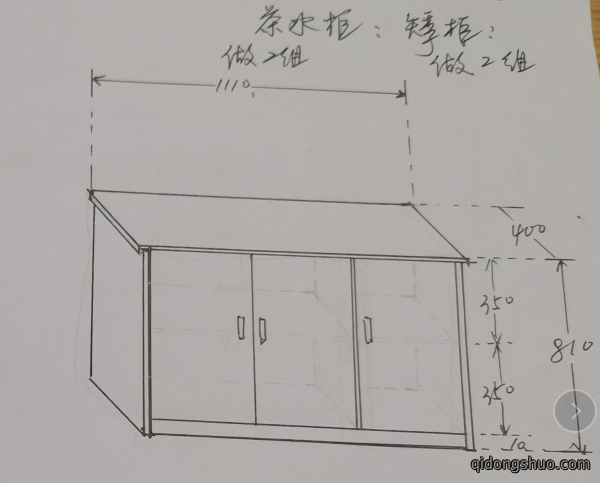 茶水柜： 矮柜：
做2组 做2组
1110
400
350
810
350
qidongshuo.com